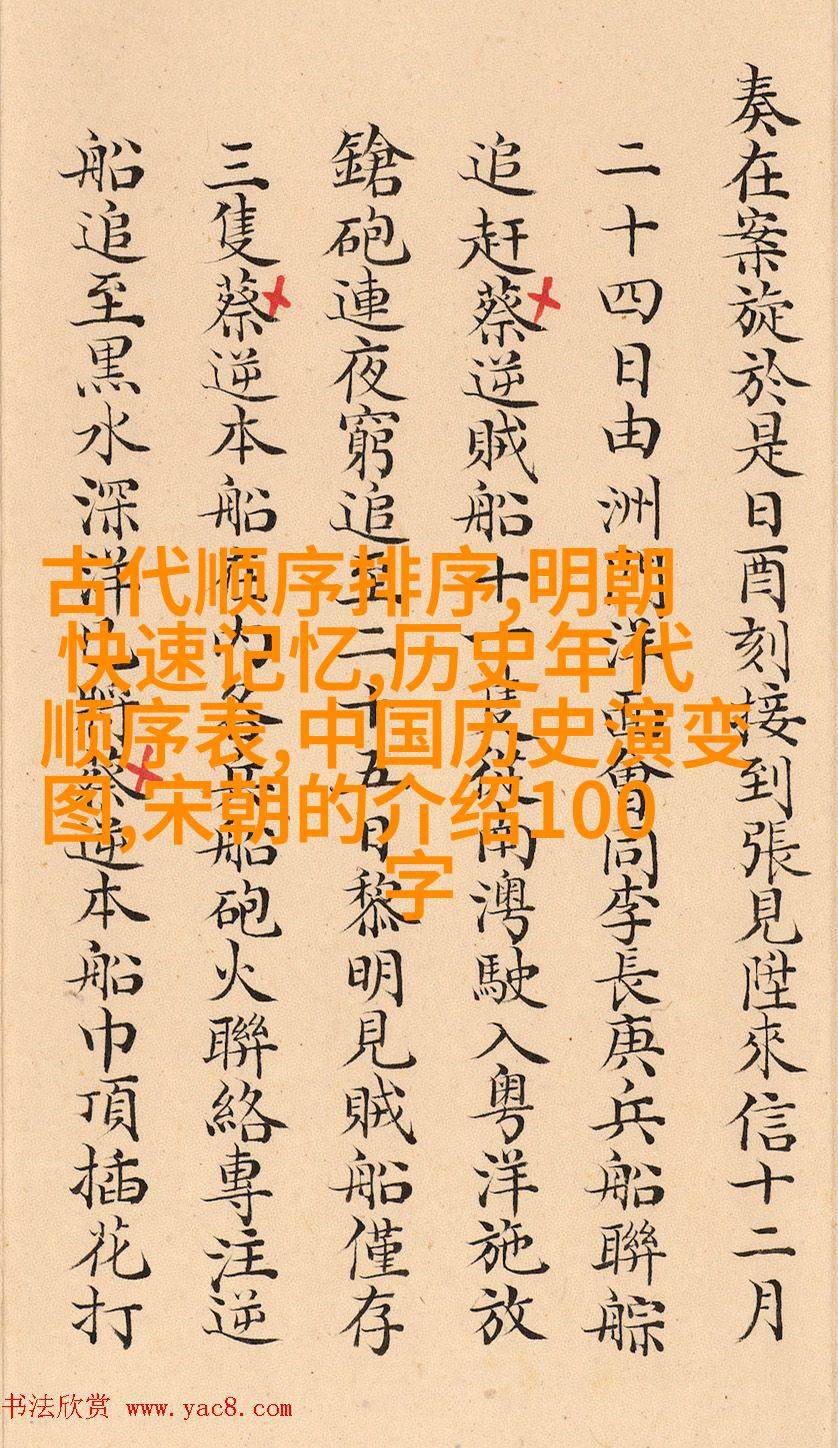 奏在案旋於是日酉刻接到張見陞來信十二月
二十四日由洲洋面會同李長庚兵船聯䑸
追赶蔡逆賊船十一隻從南澳駛入粤洋施放
鎗砲連夜窮追至二十五日黎明見賊船僅存
三隻蔡逆本船在內各兵船砲火聯絡專注逆
船追至黒水深洋已將蔡逆本船巾頂插花打
古代顺序排序,明朝
快速记忆,历史年代
顺序表,中国历史演变
图,宋朝的介绍100
字
书法欣赏 www.yac8.com